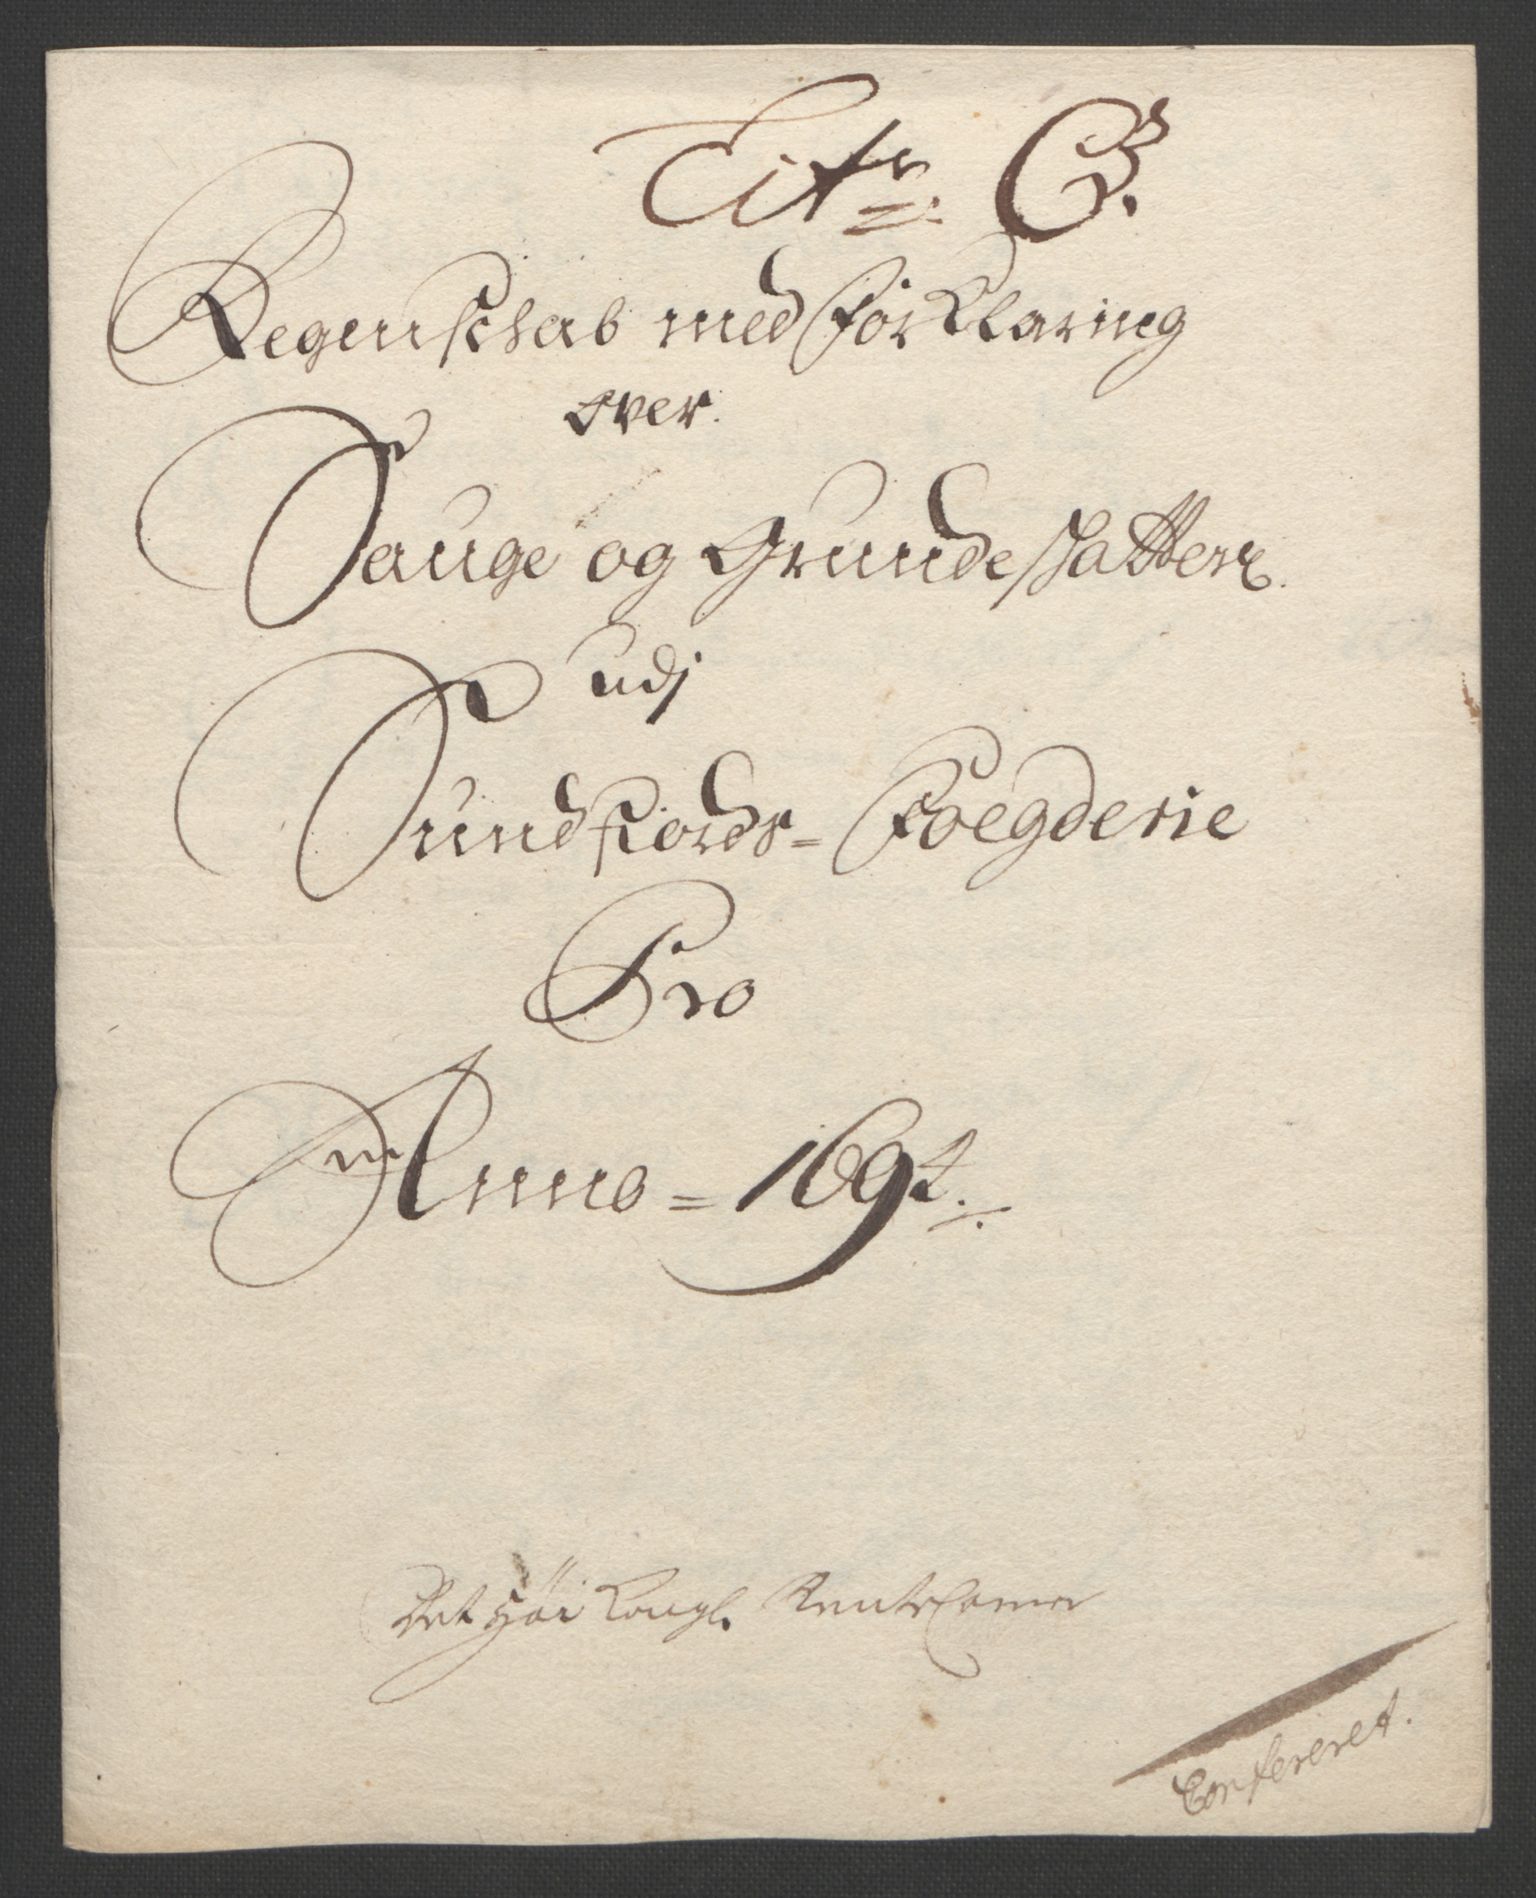 Litr: C.
Regenskab med forklaring
over.
Sauge og Grunde skatter
udj
Sundfiords = Foegderie
Pro
Anno = 1694.
Det Høi Kongl. RenteCamer
Confereret.